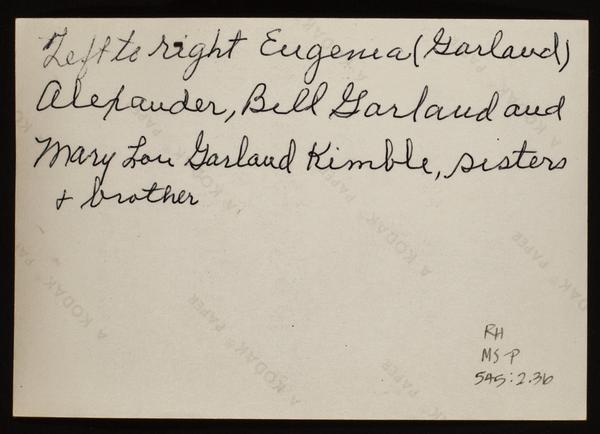 Left to right Eugenia (Garland)
Alexander, Bill Garland and
Mary Lou Garland Kimble, sisters
+ brother
A KODAK® PAPER
A KODAK® PAPER
A KODAK® PAPER
A KODAK® PAPER
RH
MS-P
545:2.36